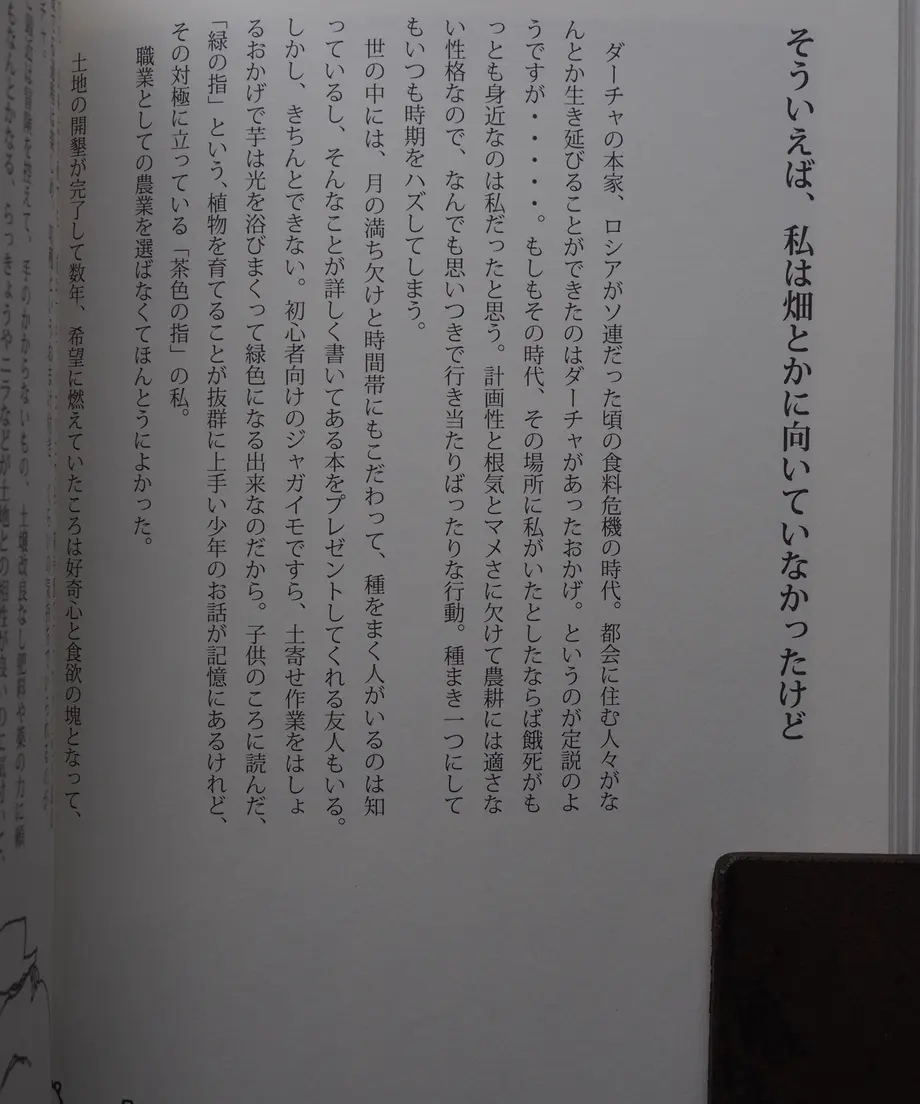 そういえば、私は畑とかに向いていなかったけど
ダーチャの本家、ロシアがソ連だった頃の食料危機の時代。都会に住む人々がな
んとか生き延びることができたのはダーチャがあったおかげ。というのが定説のよ
うですが・・・・・。もしもその時代、その場所に私がいたとしたならば餓死がも
っとも身近なのは私だったと思う。計画性と根気とマメさに欠けて農耕には適さな
い性格なので、なんでも思いつきで行き当たりばったりな行動。種まき一つにして
もいつも時期をハズしてしまう。
世の中には、月の満ち欠けと時間帯にもこだわって、種をまく人がいるのは知
っているし、そんなことが詳しく書いてある本をプレゼントしてくれる友人もいる。
しかし、きちんとできない。初心者向けのジャガイモですら、土寄せ作業をはしょ
るおかげで芋は光を浴びまくって緑色になる出来なのだから。子供のころに読んだ、
「緑の指」という、植物を育てることが抜群に上手い少年のお話が記憶にあるけれど、
その対極に立っている「茶色の指」の私。
職業としての農業を選ばなくてほんとうによかった。
土地の開墾が完了して数年、希望に燃えていたころは好奇心と食欲の塊となって、
は冒険を控えて、手のかからないもの、土壌改良なし肥料や薬の力に頼
もなんとかなる、らっきょうやニラなどが土地との相性が良いの